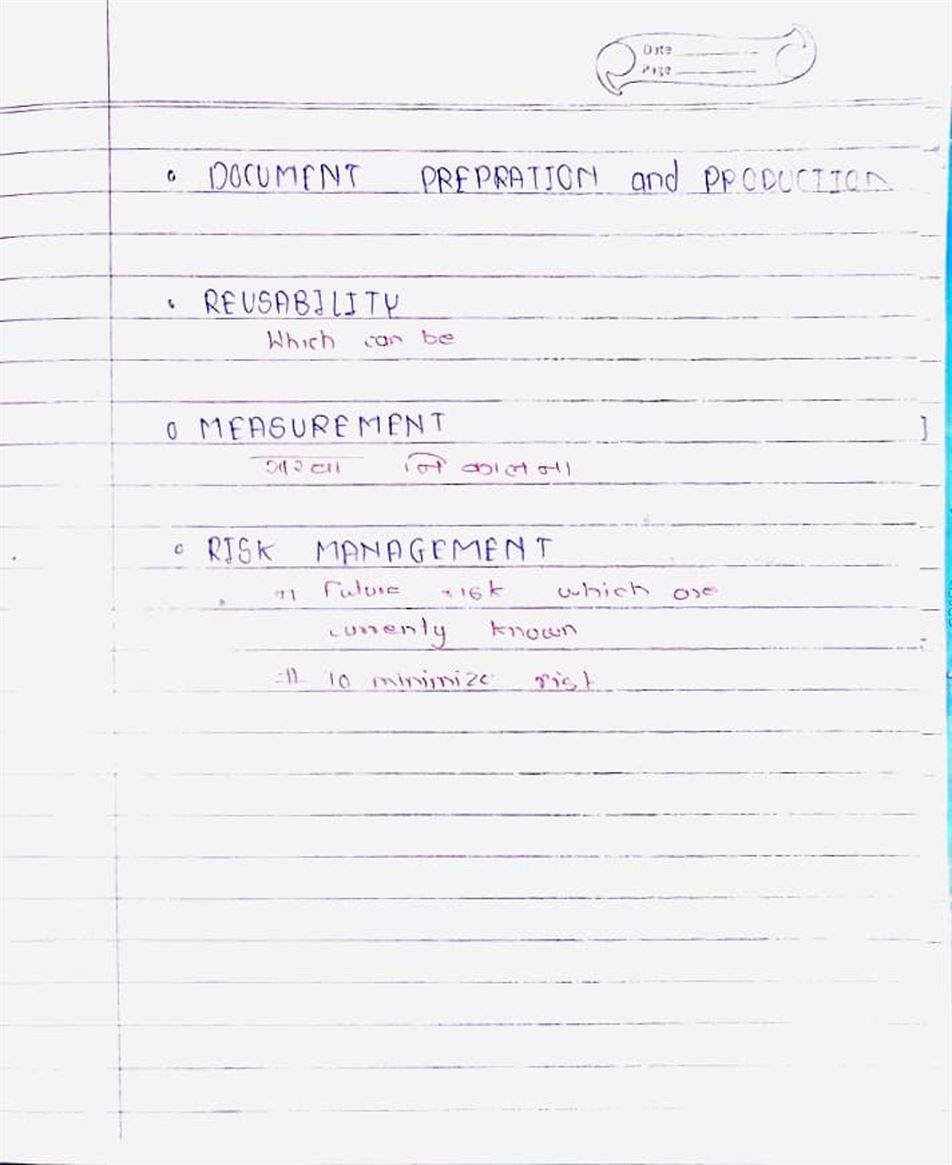 Date
Page
DOCUMENT PREPRATION and PRODUCTION
REUSABILITY
Which can be
MEASUREMENT
निकालना
RISK MANAGEMENT
Future risk which are
currenly known
to minimize risk